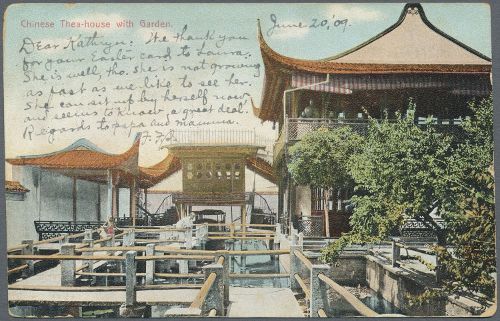 Chinese Thea-house with Garden.
June 20, '09.
Dear Kathryn: We thank you
for your Easter card to Laura.
She is well, tho. she is not growing
as fast as we like to see her.
She can sit up by herself now
and seems to know a great deal.
Regards to papa and mamma.